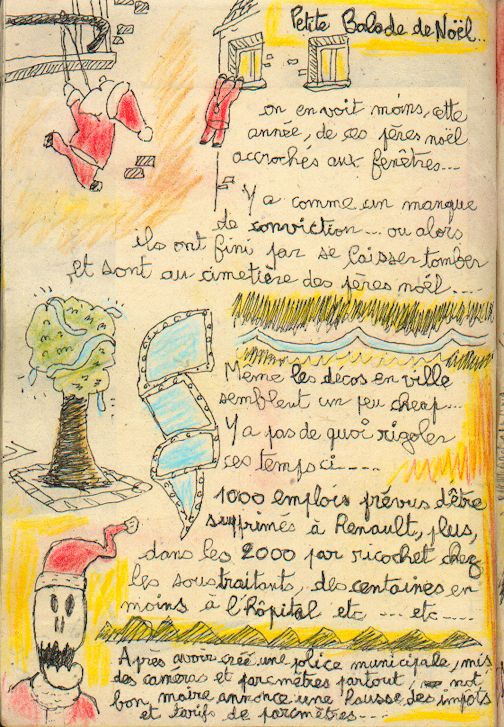 Petite Balade de Noël...
on en voit moins, cette
année, de ces pères noël
accrochés aux fenêtres...
Y a comme un manque
de conviction... ou alors
ils ont fini par se laisser tomber
et sont au cimetière des pères noël....
Même les décos en ville
semblent un peu cheap...
Y a pas de quoi rigoler
ces temps ci....
1000 emplois prévus d'être
supprimés à Renault, plus,
dans les 2000 par ricochet chez
les soustraitants, des centaines en
moins à l'hôpital etc .... etc ....
Après avoir créé une police municipale, mis
des caméras et parcmètres partout, not'
bon maire annonce une hausse des impots
et tarifs de parcmètres....